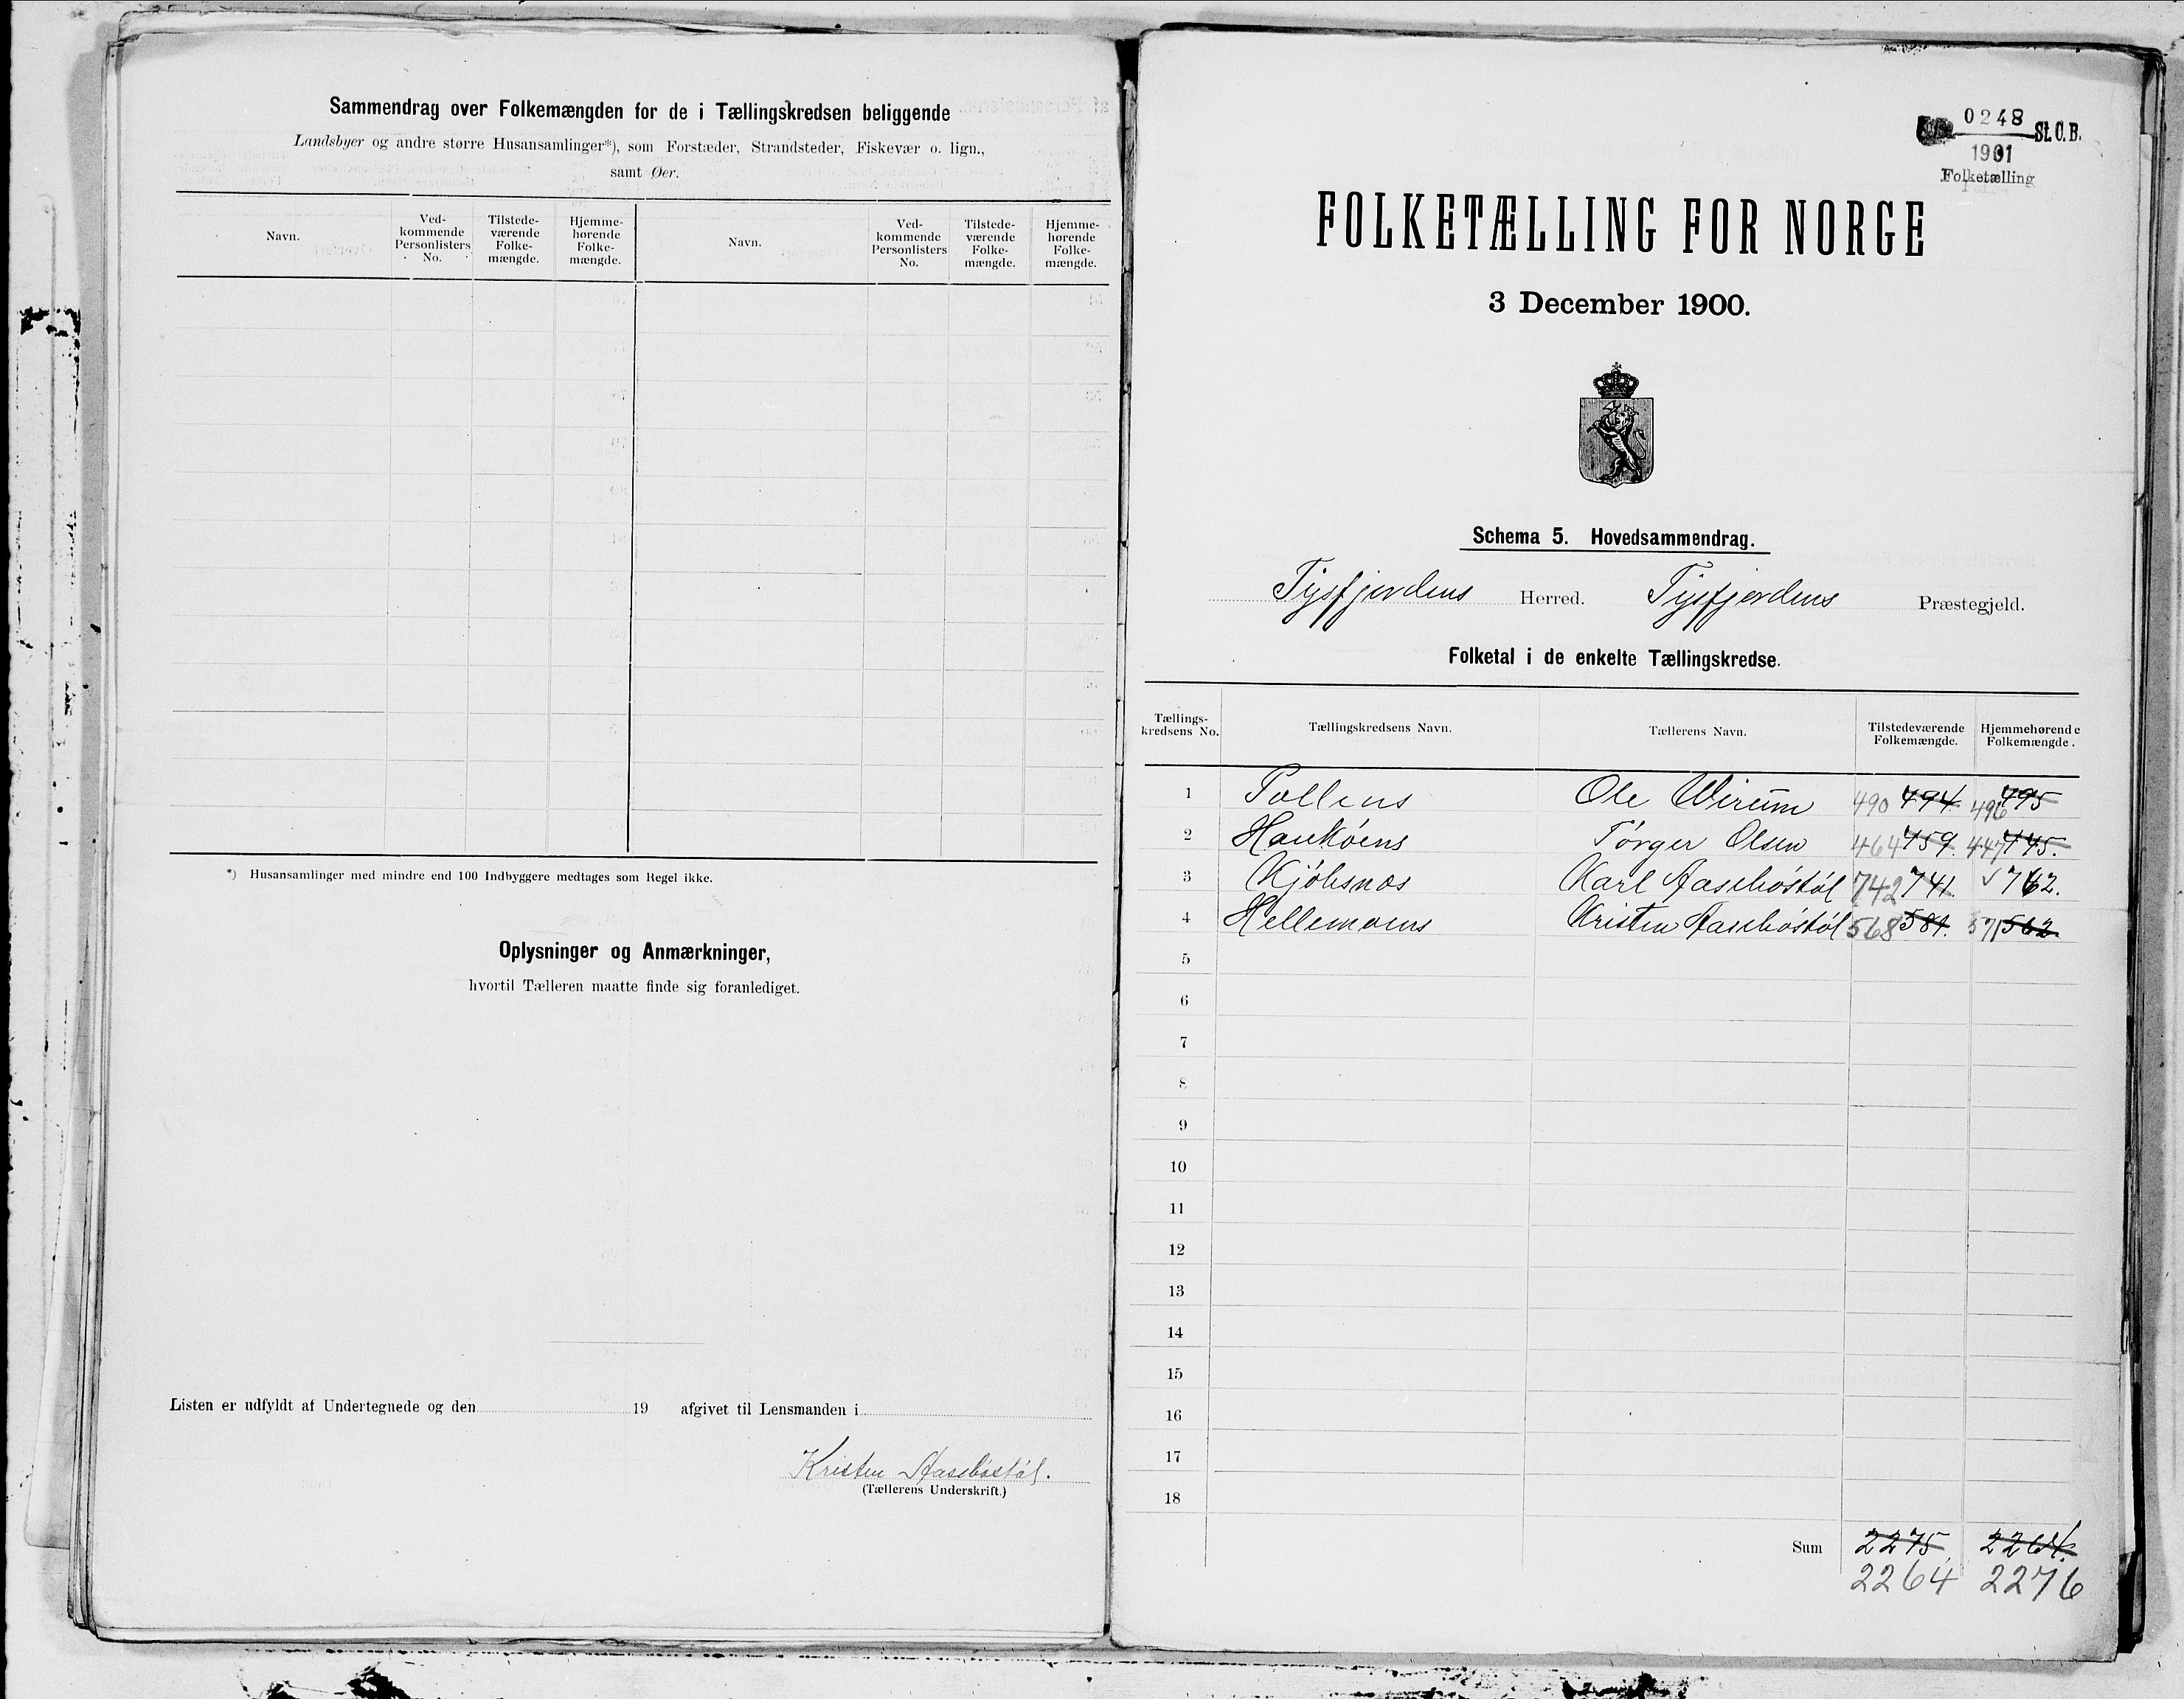 Sammendrag over Folkemængden for de i Tællingskredsen beliggende
Landsbyer og andre større Husansamlinger*), som Forstæder, Strandsteder, Fiskevær o. lign.,
samt Øer.
Navn. Ved-kommende Personlisters No. Tilstede-værende Folke-mængde. Hjemme-hørende Folke-mængde. Navn. Ved-kommende Personlisters No. Tilstede-værende Folke-mængde. Hjemme-hørende Folke-mængde.
*) Husansamlinger med mindre end 100 Indbyggere medtages som Regel ikke.
Oplysninger og Anmærkninger,
hvortil Tælleren maatte finde sig foranlediget.
Listen er udfyldt af Undertegnede og den 19 afgivet til Lensmanden i
Kristen Aasebøstøl.
(Tællerens Underskrift.)
0248 St.C.B.
1901
Folketælling
FOLKETÆLLING FOR NORGE
3 December 1900.
Schema 5. Hovedsammendrag.
Tysfjordens Herred. Tysfjordens Præstegjeld.
Folketal i de enkelte Tællingskredse.
Tællings-kredsens No. Tællingskredsens Navn. Tællerens Navn. Tilstedeværende Folkemængde. Hjemmehørende Folkemængde.
1 Pollens Ole Wirum 490 494. 496 495
2 Haukøens Tørger Olsen 464 459. 447 445.
3 Kjøbsnæs Karl Aasebøstøl 742 741. √ 762.
4 Hellemoens Kristen Aasebøstøl 568 581. 571 562.
5
6
7
8
9
10
11
12
13
14
15
16
17
18
Sum 2275. 2264.
2264 2276